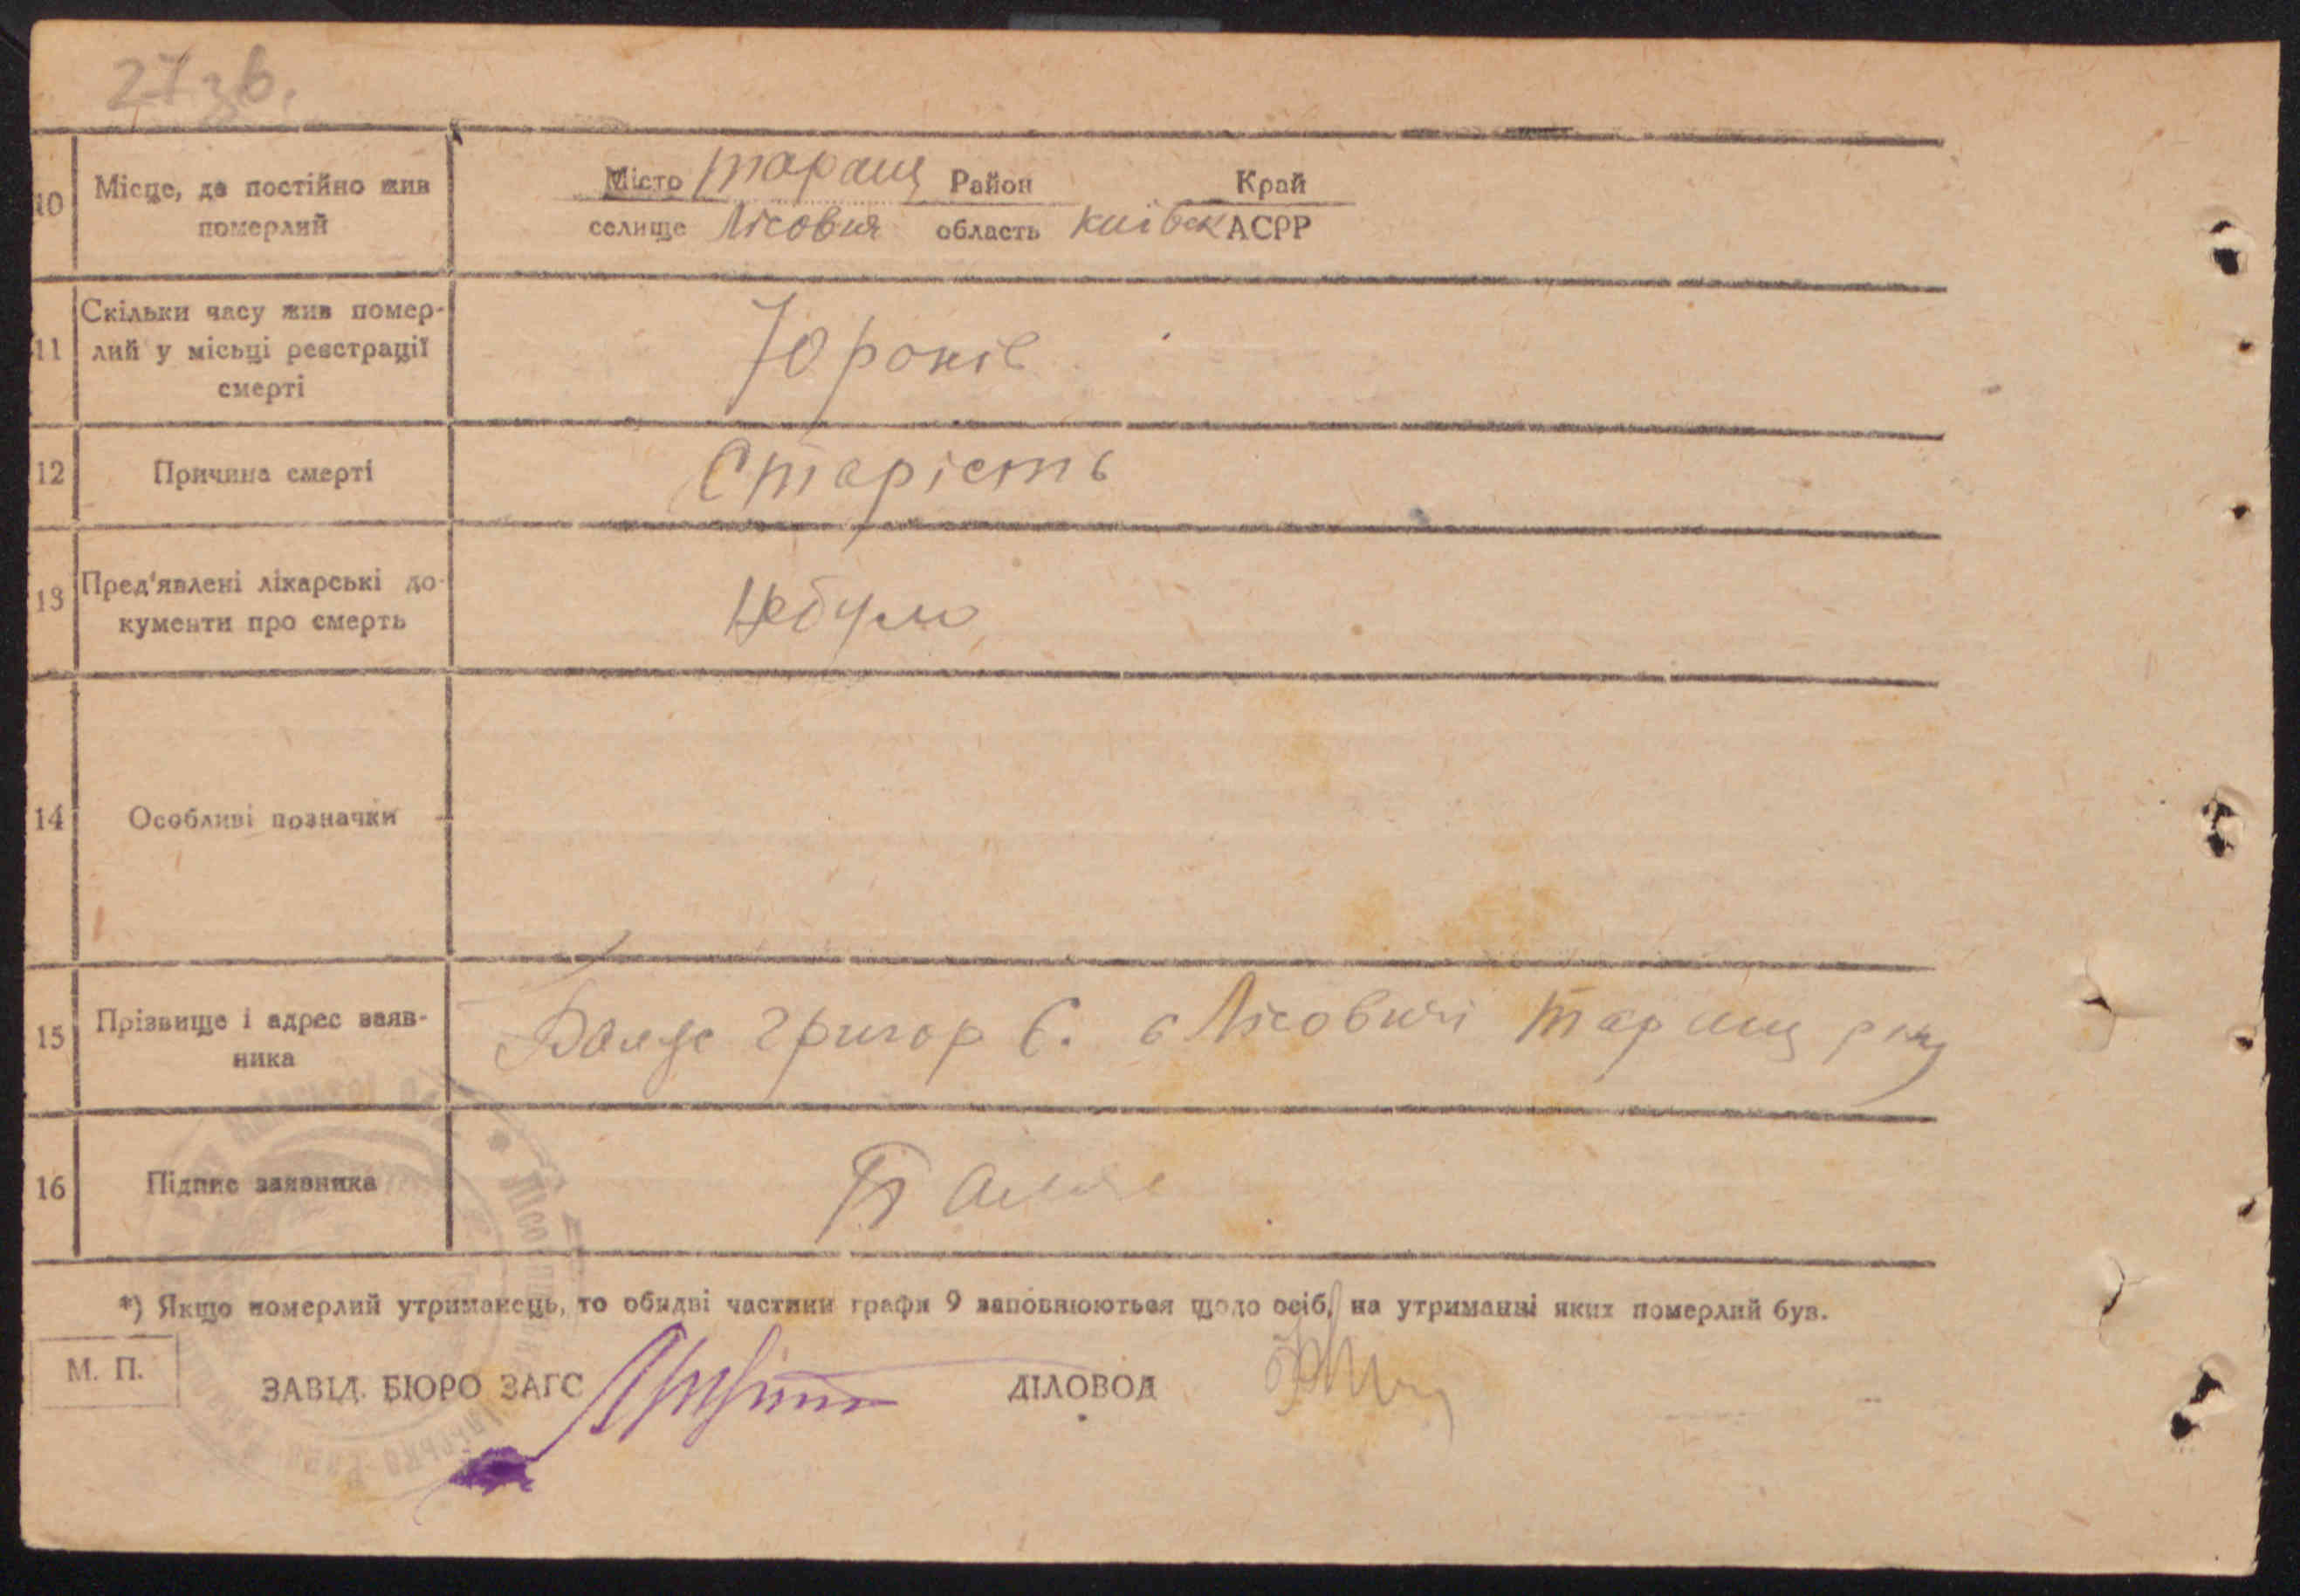 27 зв.
10 Місце, де постійно жив
померлий
Місто Таращ Район Край
селище Лісович область Київськ АСРР
11 Скільки часу жив помер-
лий у місьці реєстрації
смерті
70 років
12 Причина смерті
Старість
13 Пред'явлені лікарські до-
кументи про смерть
Небуло
14 Особливі позначки
15 Прізвище і адрес заяв-
ника
Григор Є. с Лісовичі Таращ р-ну
16 Підпис заявника
*) Якщо померлий утриманець, то обидві частини графи 9 заповнюються щодо осіб, на утриманні яких померлий був.
М. П.
ЗАВІД. БЮРО ЗАГС
ДІЛОВОД